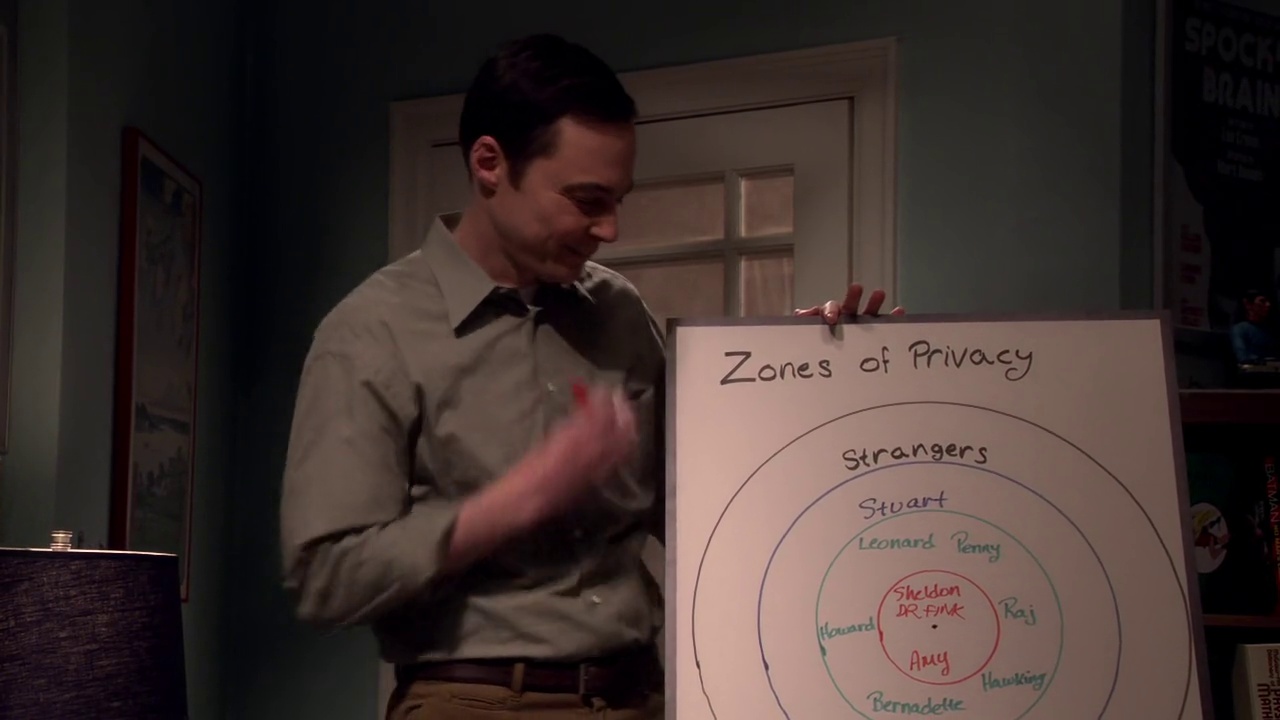 SPOCK'S
BRAIN
Zones of Privacy
Strangers
Stuart
Leonard Penny
Sheldon
DR. FINK
Raj
Howard
Amy
Hawking
Bernadette